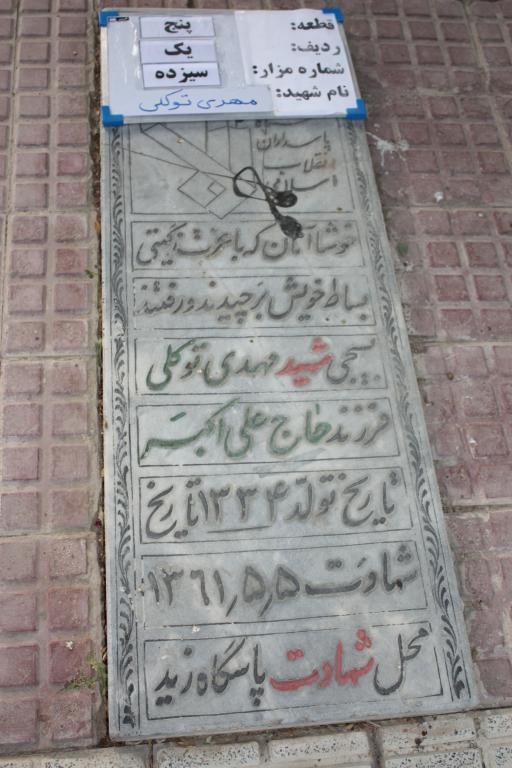 قطعه: پنج
ردیف: یک
شماره مزار: سیزده
نام شهید: مهدی توکلی
پاسداران
انقلاب
اسلامی
خوشا آنان که با عزت ز گیتی
بساط خویش بر چیدند و رفتند
بسیجی شهید مهدی توکلی
فرزند حاج علی اکبر
تاریخ تولد ۱۳۳۴ تاریخ
شهادت ۱۳۶۱٫۵٫۵
محل شهادت پاسگاه زید